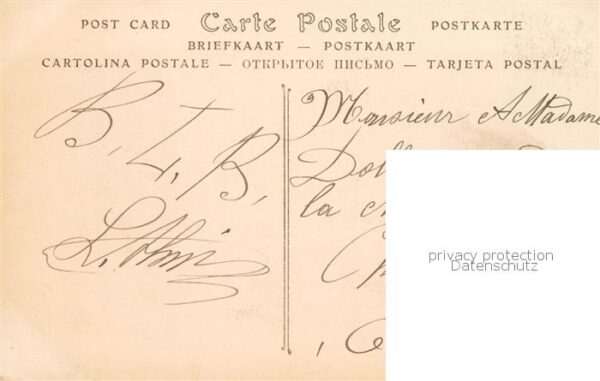 POST CARD Carte Postale POSTKARTE
BRIEFKAART — POSTKAART
CARTOLINA POSTALE — ОТКРЫТОЕ ПИСЬМО — TARJETA POSTAL
B. L. B.
Monsieur & Madame
la
privacy protection
Datenschutz